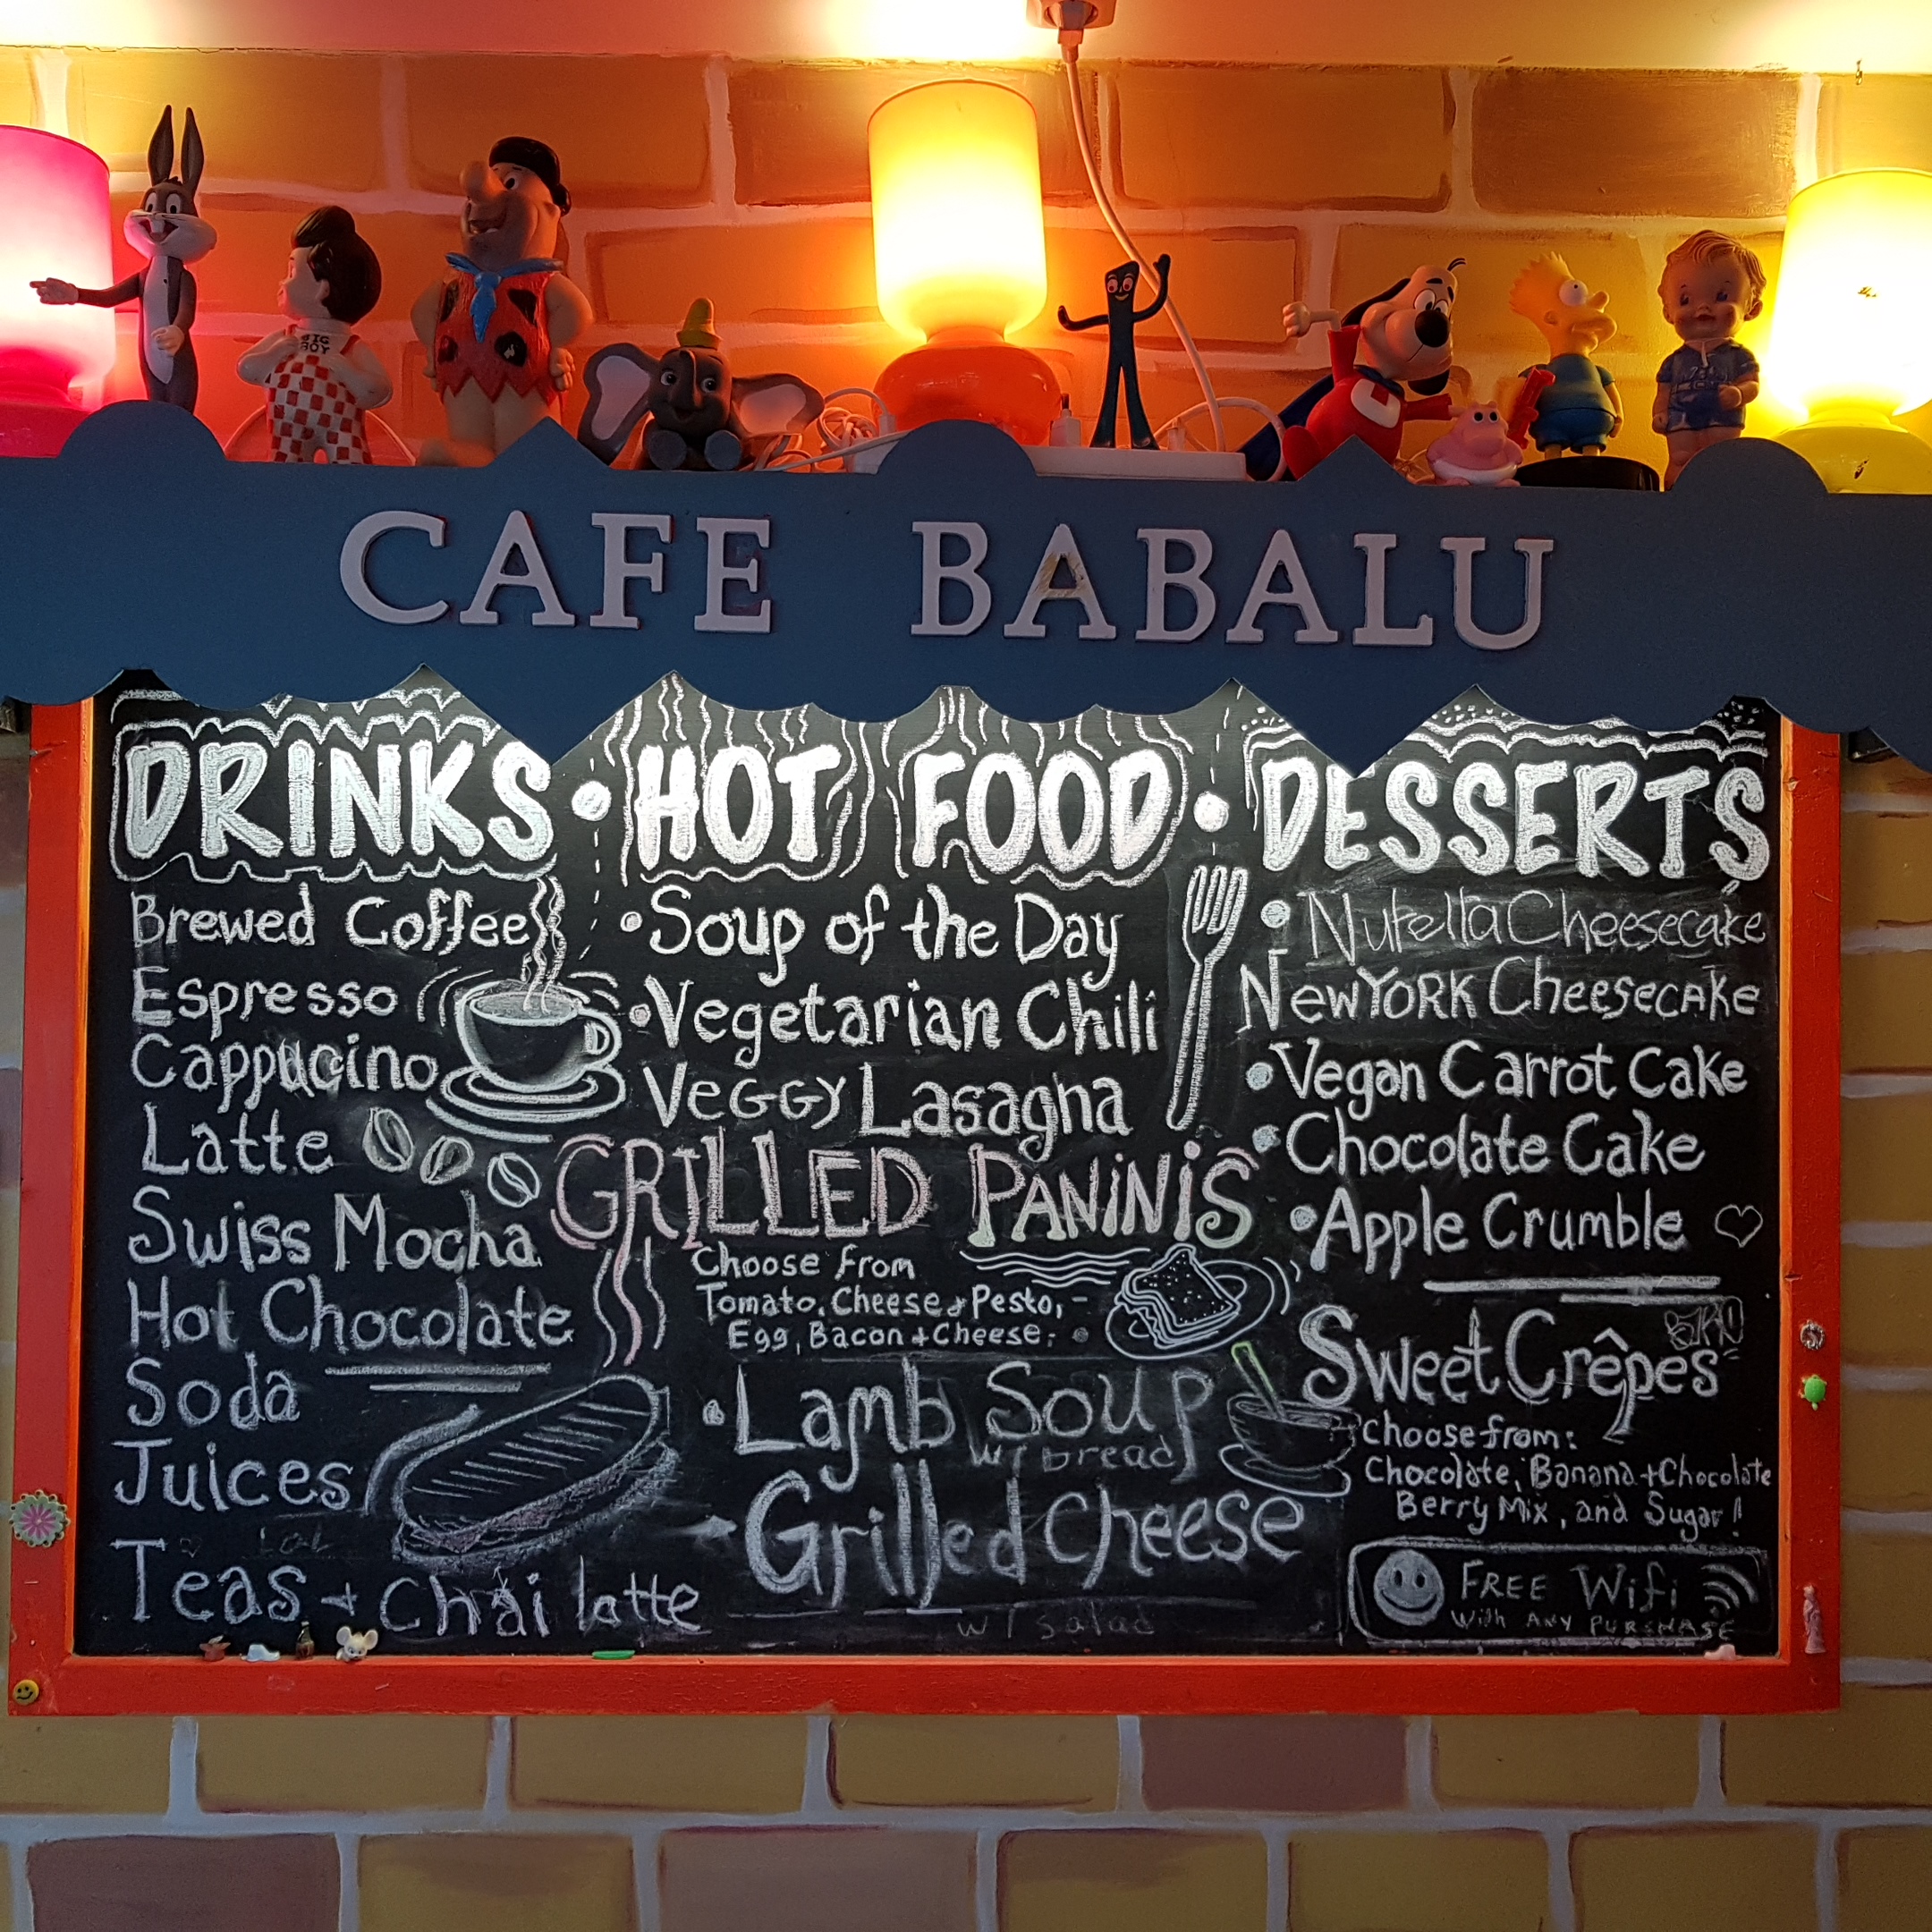 BIG
BOY
CAFE BABALU
DRINKS • HOT FOOD • DESSERTS
Brewed Coffee
Espresso
Cappucino
Latte
Swiss Mocha
Hot Chocolate
Soda
Juices
Teas + Chai latte
• Soup of the Day
• Vegetarian Chili
VeGGY Lasagna
GRILLED PANiNiS
Choose From
Tomato, Cheese & Pesto,
Egg, Bacon + Cheese,
• Lamb Soup
w/ bread
Grilled Cheese
w/ salad
• Nutella Cheesecake
NewYORK CheesecAKe
• Vegan Carrot Cake
• Chocolate Cake
• Apple Crumble
Sweet Crêpes
Choose from:
Chocolate, Banana + Chocolate
Berry Mix, and Sugar!
FREE Wifi
With ANY PURCHASE